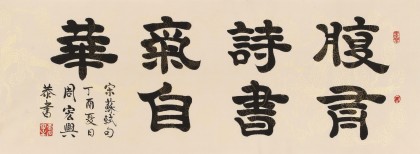 腹有
詩書
氣自
華
宋蘇軾句
丁酉夏日
周宏興
恭書